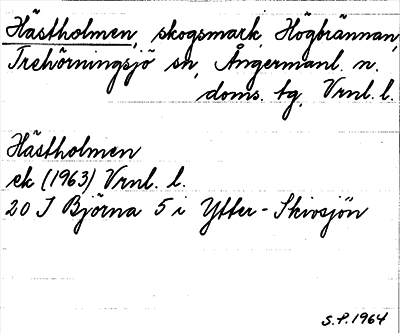 Hästholmen, skogsmark, Högbrännan,
Trehörningsjö sn, Ångermanl. n.
doms. tg, Vrnl. l.
Hästholmen
ek (1963) Vrnl. l.
20 I Björna 5 i Ytter-Skivsjön
S.P. 1964